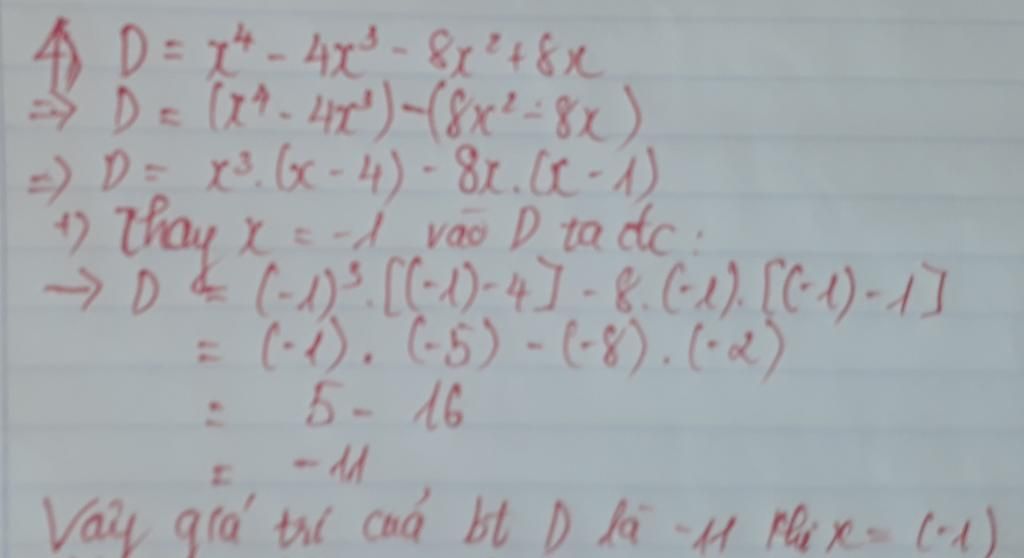 4) D = x⁴ - 4x³ - 8x² + 8x
=> D = (x⁴ - 4x³) - (8x² - 8x)
=> D = x³.(x - 4) - 8x.(x - 1)
+) Thay x = -1 vào D ta đc :
-> D = (-1)³.[(-1)-4] - 8.(-1).[(-1)-1]
= (-1) . (-5) - (-8) . (-2)
= 5 - 16
= -11
Vậy giá trị cuả bt D là -11 khi x = (-1)